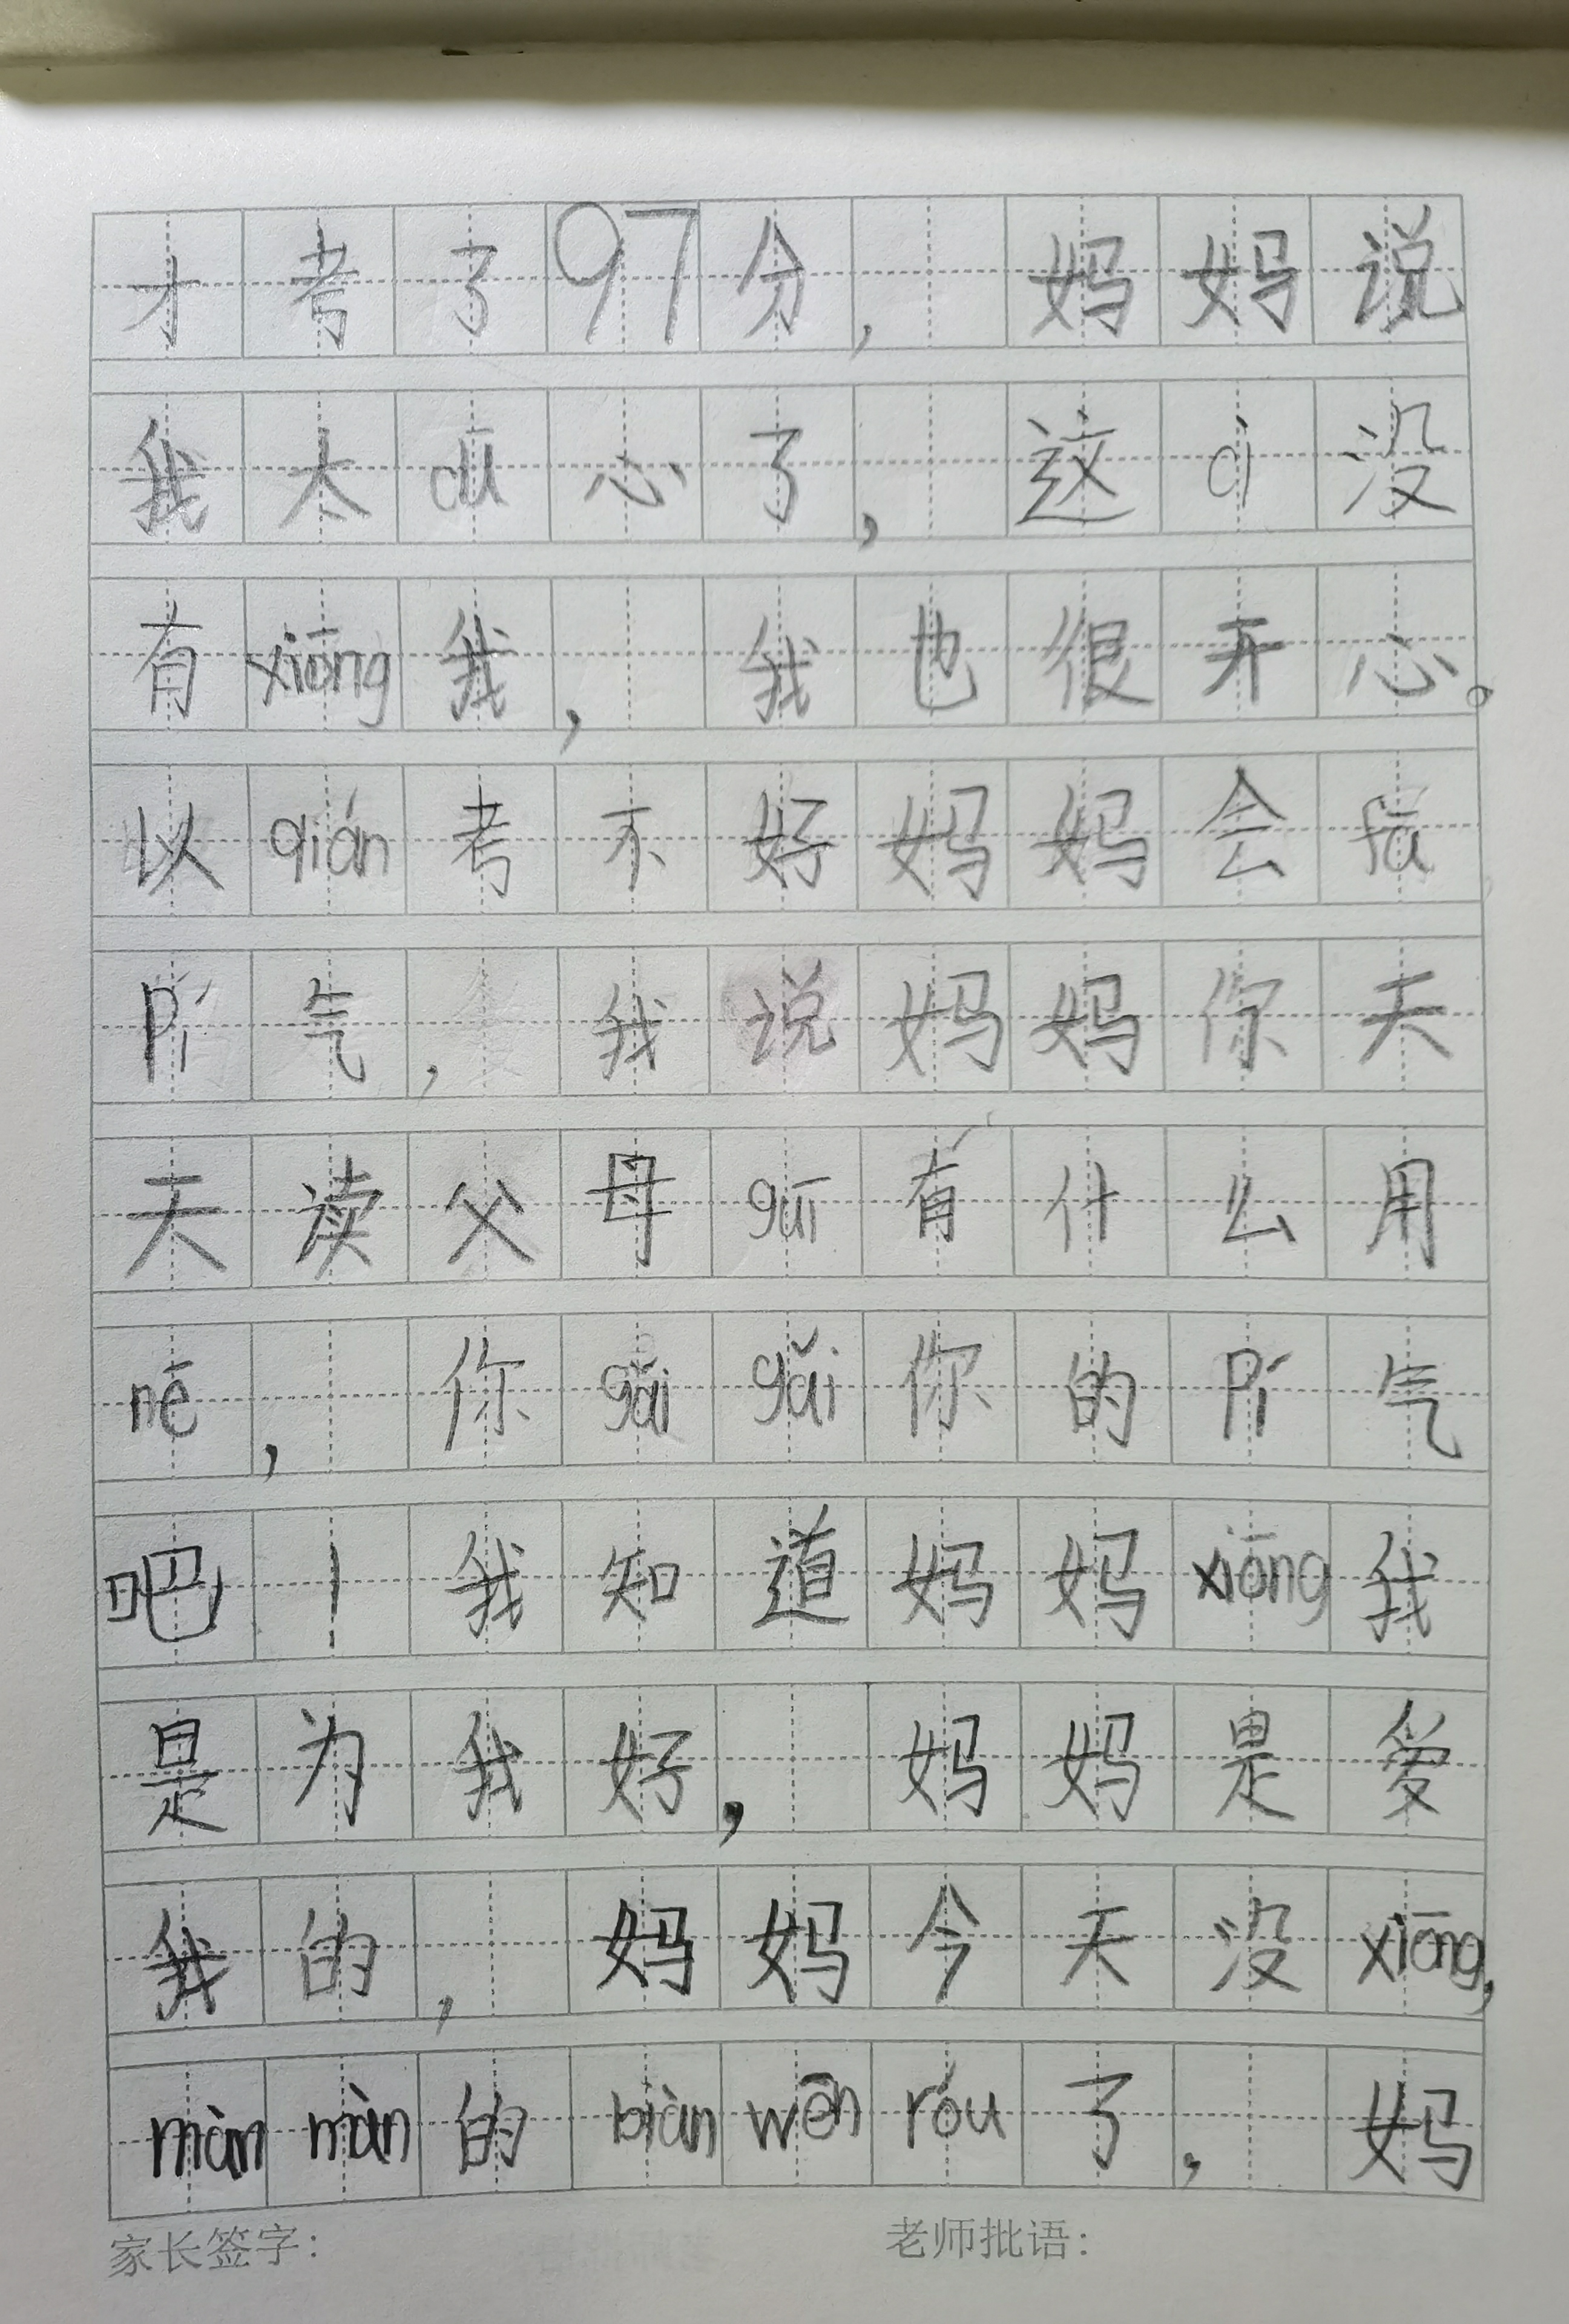 才考了97分，妈妈说
我太cū心了，这cì没
有xiōng我，我也很开心。
以qián考不好妈妈会fā
pí气，我说妈妈你天
天读父母guī有什么用
nē，你gǎigǎi你的pí气
吧！我知道妈妈xiōng我
是为我好，妈妈是爱
我的，妈妈今天没xiōng，
mànmàn的biànwēnróu了，妈
家长签字： 老师批语：